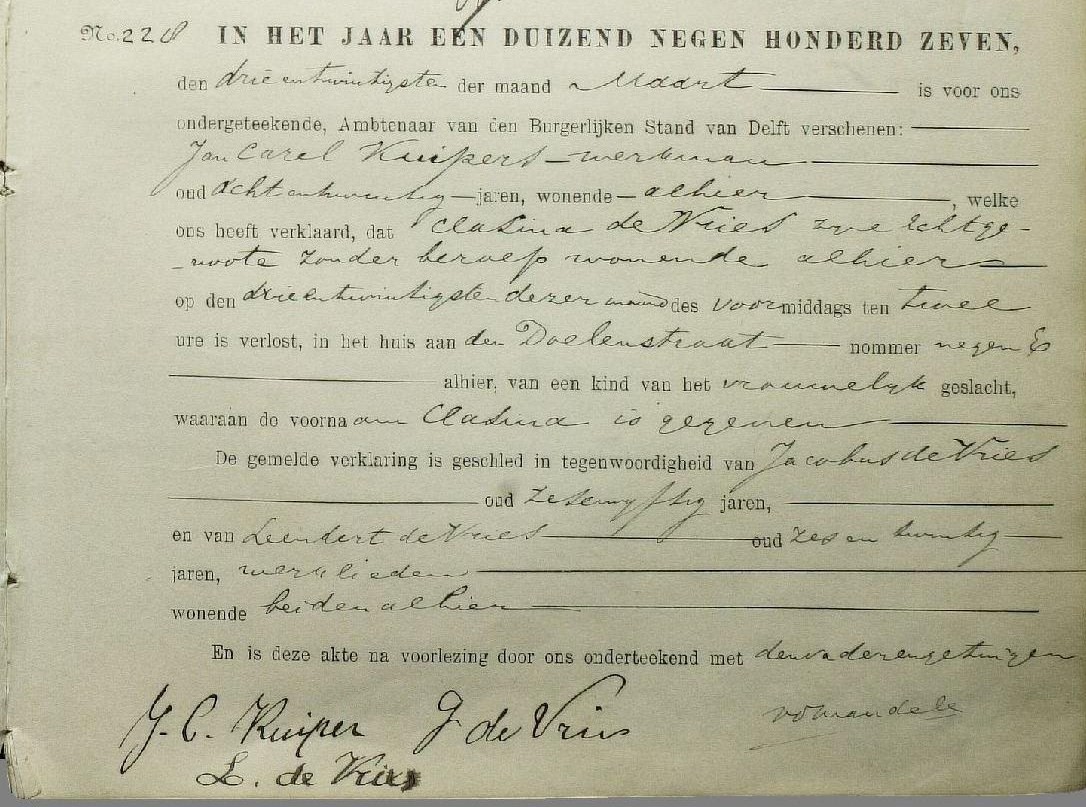 No. 228 IN HET JAAR EEN DUIZEND NEGEN HONDERD ZEVEN,
den drieentwintigsten der maand Maart is voor ons
ondergeteekende, Ambtenaar van den Burgerlijken Stand van Delft verschenen:
Jan Carel Kuipers werkman
oud achtentwintig jaren, wonende alhier, welke
ons heeft verklaard, dat Clasina de Vries zyne Echtge-
-noote zonder beroep wonende alhier
op den drieentwintigsten dezer maand des voormiddags ten twee
ure is verlost, in het huis aan den Doelenstraat nommer negen
alhier, van een kind van het vrouwelyk geslacht,
waaraan de voornaam Clasina is gegeven
De gemelde verklaring is geschied in tegenwoordigheid van Jacobus de Vries
oud zesenvyftig jaren,
en van Leendert de Vries oud zesentwintig
jaren, werklieden
wonende beiden alhier
En is deze akte na voorlezing door ons onderteekend met den vader en getuigen
J. C. Kuiper J. de Vries
L. de Vries